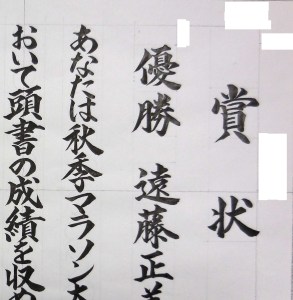 賞状
優勝 遠藤正
あなたは秋季マラソン大
おいて頭書の成績を収め